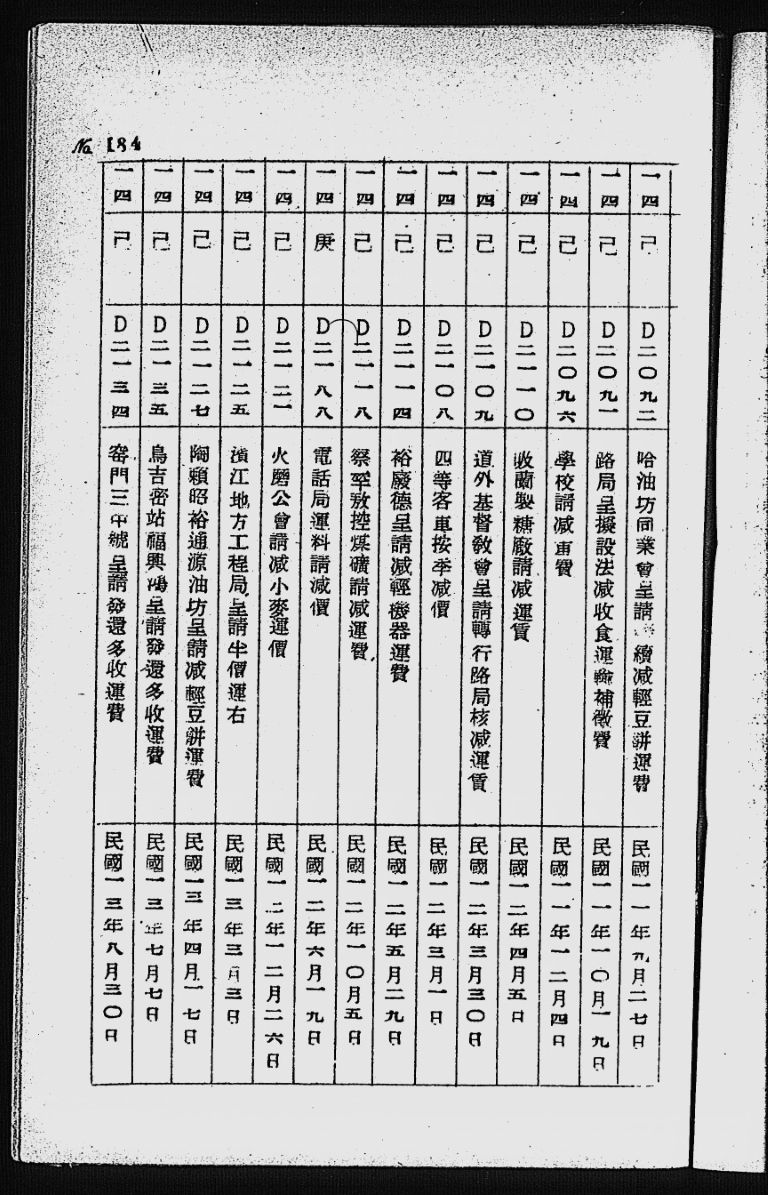 No. 184
一四 己 D二〇九二 哈油坊同業會呈請續減輕豆餅運費 民國一一年九月二七日
一四 己 D二〇九一 路局呈擬設法減收食運輸補徵費 民國一一年一〇月一九日
一四 己 D二〇九六 學校請減車費 民國一一年一二月四日
一四 己 D二一一〇 收蘭製糖廠請減運賃 民國一二年四月五日
一四 己 D二一〇九 道外基督敎會呈請轉行路局核減運賃 民國一二年三月三〇日
一四 己 D二一〇八 四等客車按季減價 民國一二年三月一日
一四 己 D二一一四 裕廢德呈請減輕機器運費 民國一二年五月二九日
一四 己 D二一一八 察罕敖控煤礦請減運費 民國一二年一〇月五日
一四 庚 D二一八八 電話局運料請減價 民國一二年六月一九日
一四 己 D二一二一 火磨公會請減小麥運價 民國一二年一二月二六日
一四 己 D二一二五 濱江地方工程局呈請半價運右 民國一三年三月三日
一四 己 D二一二七 陶賴昭裕通源油坊呈請減輕豆餅運費 民國一三年四月一七日
一四 己 D二一三五 烏吉密站福興鴻呈請發還多收運費 民國一三年七月七日
一四 己 D二一三四 窰門三中號呈請發還多收運費 民國一三年八月三〇日